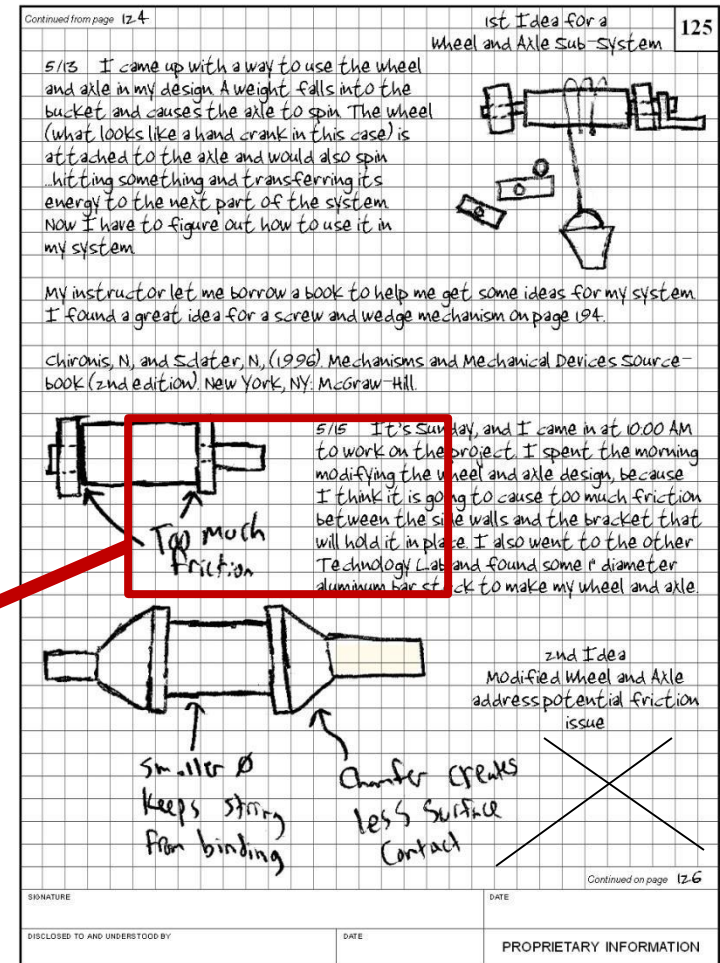 Continued from page 124
1st Idea for a
Wheel and Axle Sub-System
125
5/13 I came up with a way to use the wheel
and axle in my design. A weight falls into the
bucket and causes the axle to spin. The wheel
(what looks like a hand crank in this case) is
attached to the axle and would also spin
...hitting something and transferring its
energy to the next part of the system.
Now I have to figure out how to use it in
my system.
My instructor let me borrow a book to help me get some ideas for my system.
I found a great idea for a screw and wedge mechanism on page 194.
Chironis, N, and Sclater, N, (1996). Mechanisms and Mechanical Devices Source-
book (2nd edition). New York, NY: McGraw-Hill.
5/15 It's Sunday, and I came in at 10:00 AM
to work on the project. I spent the morning
modifying the wheel and axle design, because
I think it is going to cause too much friction
between the side walls and the bracket that
will hold it in place. I also went to the other
Technology Lab and found some 1" diameter
aluminum bar stock to make my wheel and axle.
Too much
friction
2nd Idea
Modified Wheel and Axle
address potential friction
issue
Smaller Ø
Keeps string
from binding
Chamfer creates
less surface
contact
Continued on page 126
SIGNATURE
DATE
DISCLOSED TO AND UNDERSTOOD BY
DATE
PROPRIETARY INFORMATION